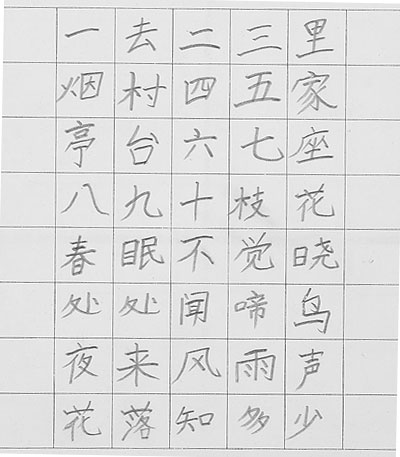 一去二三里
烟村四五家
亭台六七座
八九十枝花
春眠不觉晓
处处闻啼鸟
夜来风雨声
花落知多少